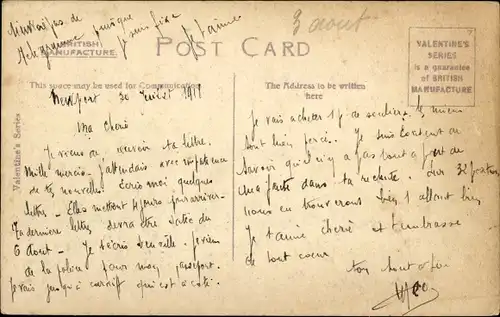 N'envoie pas de
télégramme puisque
j'suis fixé
Je t'aime
3 aout
BRITISH
MANUFACTURE
POST CARD
VALENTINE'S
SERIES
is a guarantee
of BRITISH
MANUFACTURE
This space may be used for Communication
The Address to be written
here
Valentine's Series
Newport 30 Juillet 1911
Ma chérie
Je viens de recevoir ta lettre.
Mille mercis. J'attendais avec impatience
de tes nouvelles. Ecris moi quelques
lettres. Elles mettent 4 jours pour arriver.
Ta dernière lettre devra être datée du
6 aout. Je t'écris de ville. Je viens
de la police pour mon passeport.
Je vais jusqu'à Cardiff qui est à côté.
Je vais acheter 1 p. de souliers, les miens
sont bien percés. Je suis content de
savoir qu'il n'y a pas tout à fait de
ma faute dans ta rechute. Sur 32
nous en trouverons bien 1 allant bien
Je t'aime chérie et t'embrasse
de tout coeur
ton